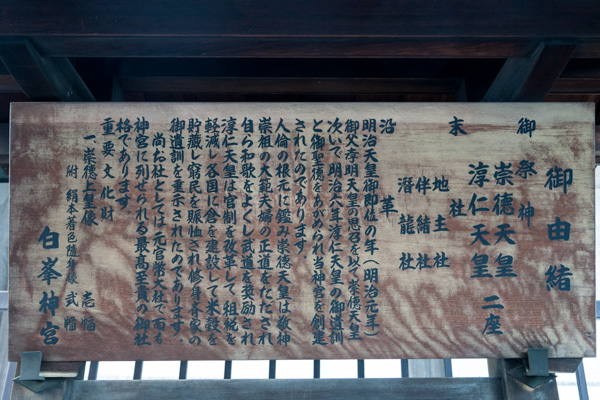 御由緒
御祭神
崇徳天皇
淳仁天皇 二座
末社
地主社
伴緒社
潜龍社
沿革
明治天皇御即位の年(明治元年)
御父孝明天皇の思召を以て崇徳天皇
次いで明治六年淳仁天皇の御遺訓
と御聖徳をあがめられ当神宮を創建
されたのであります。
人倫の根元に鑑み崇徳天皇は敬神
崇祖の大範夫婦の正道をたたされ
自ら和歌をよくし武道を奨励され
淳仁天皇は官制を改革して、租税を
軽減し各国に倉を建設して米穀を
貯蔵し窮民を賑恤され修身斉家の
御遺訓を垂示されたのであります。
尚お社としては元官幣大社で而も
神宮に列せられる最高至貴の御社
格であります。
重要文化財
一、崇徳上皇像 壱幅
附 絹本着色随身像 弐幅
白峯神宮